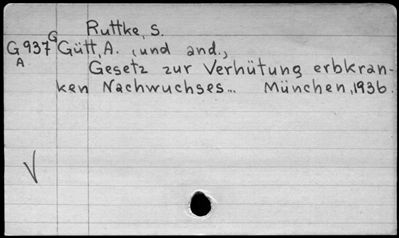 Ruttke, S.
G 937 G Gütt, A. , und and.,
A Gesetz zur Verhütung erbkran-
ken Nachwuchses... München, 1936.
√